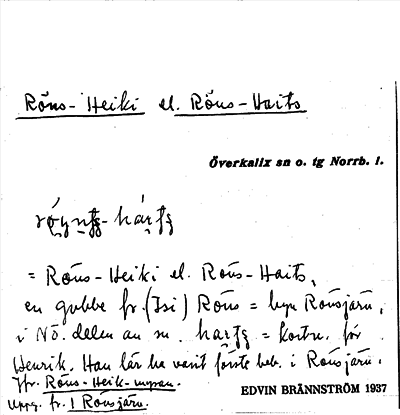 Röns-Heiki el. Röns-Haits
Överkalix sn o. tg Norrb. l.
= Röns-Heiki el. Röns-Haits,
en gubbe fr. (Isi) Röns = byn Rönsjärn,
i NÖ. delen av sn. = kortn. för
Henrik. Han lär ha varit förste beb. i Rönsjärn.
Jfr. Röns-Heik-myran.
Uppg. fr. i Rönsjärn.
EDVIN BRÄNNSTRÖM 1937